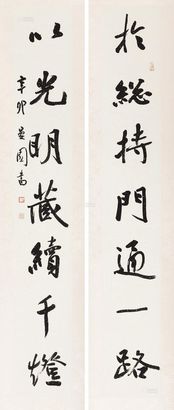 於總持門通一路
以光明藏續千燈
辛卯 奠國書